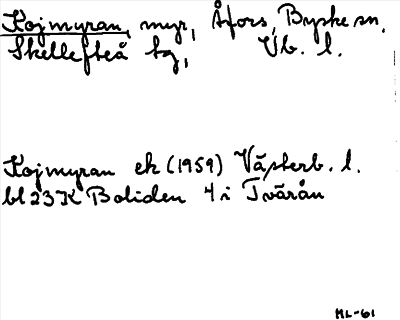 Kojmyran, myr, Åfors, Byske sn,
Skellefteå tg, Vb. l.
Kojmyran ek (1959) Västerb. l.
bl 23 K Boliden 4 i Tvärån
ML-61